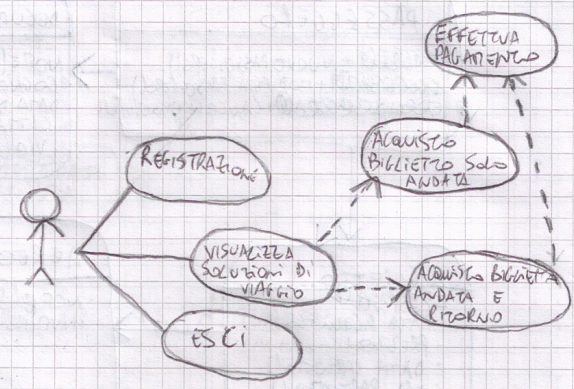 EFFETTUA
PAGAMENTO
ACQUISTO
BIGLIETTO SOLO
ANDATA
REGISTRAZIONE
VISUALIZZA
SOLUZIONI DI
VIAGGIO
ACQUISTO BIGLIETTO
ANDATA E
RITORNO
ESCI